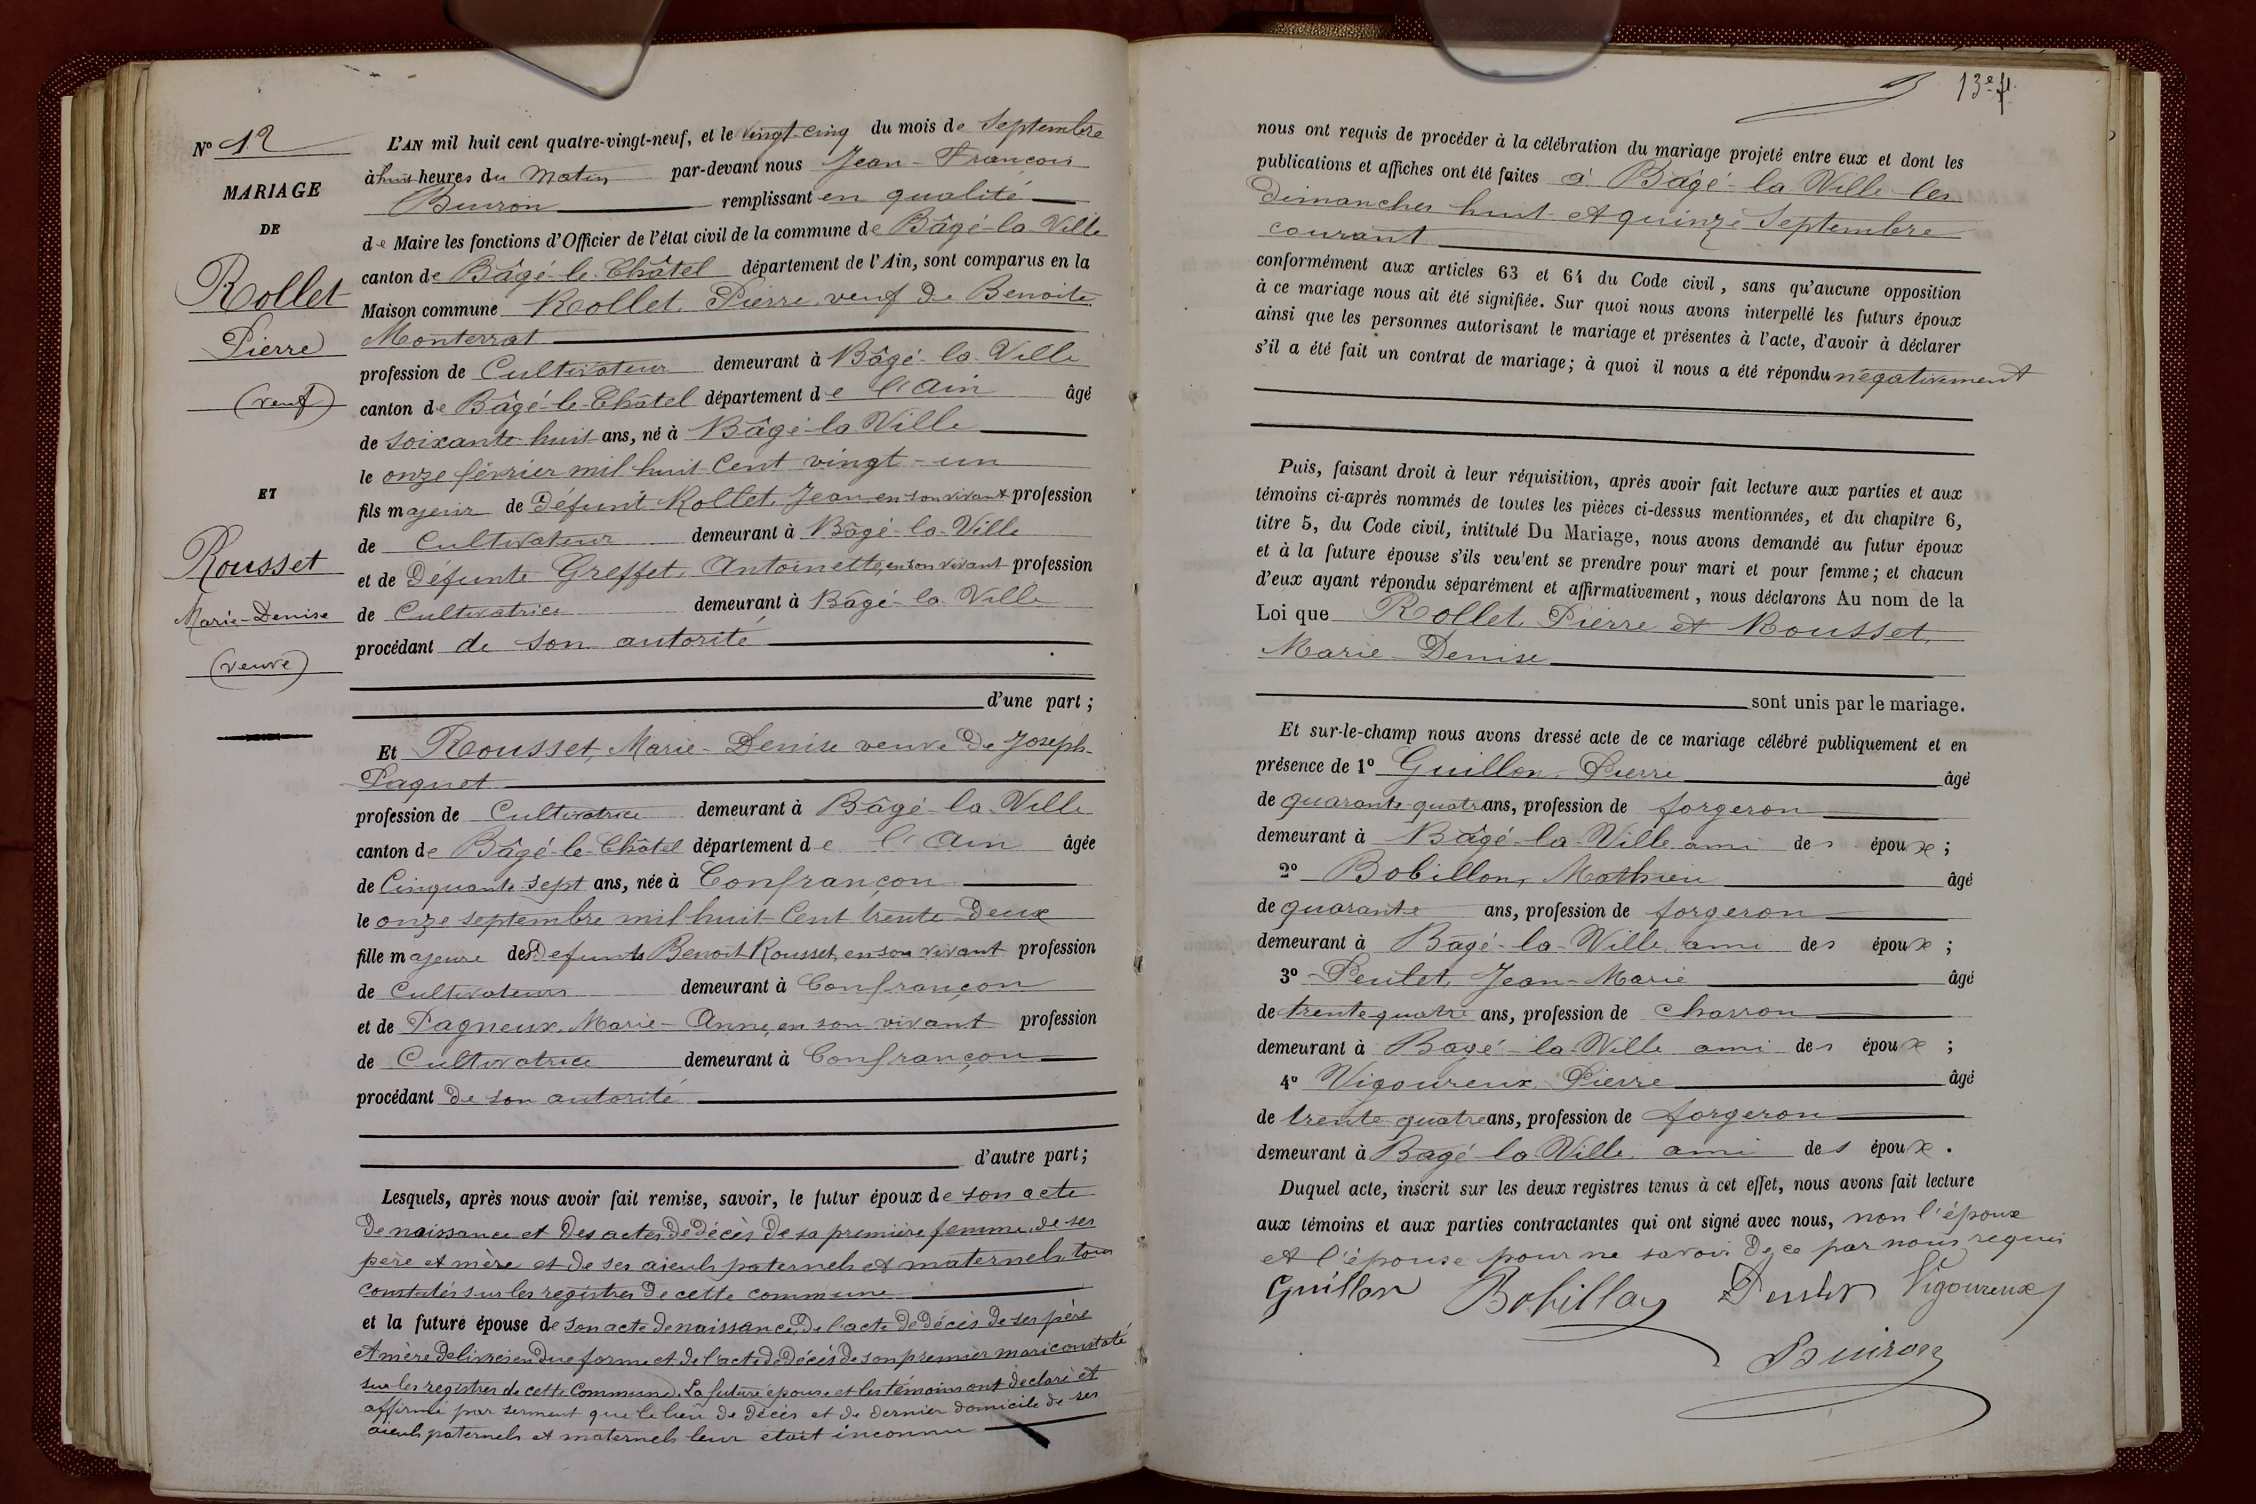 N° 12
MARIAGE
DE
Rollet
Pierre
(veuf)
ET
Rousset
Marie-Denise
(veuve)
L'AN mil huit cent quatre-vingt-neuf, et le vingt-cinq du mois de Septembre
à huit heures du Matin par-devant nous Jean-François
Buiron remplissant en qualité
de Maire les fonctions d'Officier de l'état civil de la commune de Bâgé-la-Ville
canton de Bâgé-le-Châtel département de l'Ain, sont comparus en la
Maison commune Rollet, Pierre, veuf de Benoite
Monterrat
profession de Cultivateur demeurant à Bâgé-la-Ville
canton de Bâgé-le-Châtel département de l'Ain âgé
de soixante huit ans, né à Bâgé-la-Ville
le onze février mil huit cent vingt-un
fils majeur de Défunt Rollet, Jean, en son vivant profession
de Cultivateur demeurant à Bâgé-la-Ville
et de Défunte Greffet, Antoinette, en son vivant profession
de Cultivatrice demeurant à Bâgé-la-Ville
procédant de son autorité
d'une part ;
Et Rousset, Marie-Denise veuve de Joseph
Paquet
profession de Cultivatrice demeurant à Bâgé-la-Ville
canton de Bâgé-le-Châtel département de l'Ain âgée
de Cinquante sept ans, née à Confrançon
le onze septembre mil huit cent trente deux
fille majeure des Defunts Benoit Rousset, en son vivant profession
de Cultivateur demeurant à Confrançon
et de Pagneux, Marie-Anne, en son vivant profession
de Cultivatrice demeurant à Confrançon
procédant de son autorité
d'autre part ;
Lesquels, après nous avoir fait remise, savoir, le futur époux de son acte
de naissance et des actes de décès de sa première femme, de ses
père et mère et de ses aieuls paternels et maternels tous
constatés sur les registres de cette commune
et la future épouse de son acte de naissance, de l'acte de décès de ses père
et mère delivrés en due forme et de l'acte de décès de son premier mari constaté
sur les registres de cette Commune. La future épouse et les témoins ont déclaré et
affirmé par serment que le lieu de décès et de dernier domicile de ses
aieuls paternels et maternels leur était inconnu
13e f.
nous ont requis de procéder à la célébration du mariage projeté entre eux et dont les
publications et affiches ont été faites à Bâgé-la-Ville les
dimanches huit et quinze Septembre
courant
conformément aux articles 63 et 64 du Code civil, sans qu'aucune opposition
à ce mariage nous ait été signifiée. Sur quoi nous avons interpellé les futurs époux
ainsi que les personnes autorisant le mariage et présentes à l'acte, d'avoir à déclarer
s'il a été fait un contrat de mariage ; à quoi il nous a été répondu négativement
Puis, faisant droit à leur réquisition, après avoir fait lecture aux parties et aux
témoins ci-après nommés de toutes les pièces ci-dessus mentionnées, et du chapitre 6,
titre 5, du Code civil, intitulé Du Mariage, nous avons demandé au futur époux
et à la future épouse s'ils veu'ent se prendre pour mari et pour femme ; et chacun
d'eux ayant répondu séparément et affirmativement, nous déclarons Au nom de la
Loi que Rollet, Pierre et Rousset,
Marie-Denise
sont unis par le mariage.
Et sur-le-champ nous avons dressé acte de ce mariage célébré publiquement et en
présence de 1° Guillon, Pierre âgé
de quarante-quatre ans, profession de forgeron
demeurant à Bâgé-la-Ville ami des époux ;
2° Bobillon, Mathieu âgé
de quarante ans, profession de forgeron
demeurant à Bâgé-la-Ville ami des époux ;
3° Peulet, Jean-Marie âgé
de trente quatre ans, profession de charron
demeurant à Bagé-la-Ville ami des époux ;
4° Vigoureux, Pierre âgé
de trente quatre ans, profession de forgeron
demeurant à Bagé-la-Ville ami des époux.
Duquel acte, inscrit sur les deux registres tenus à cet effet, nous avons fait lecture
aux témoins et aux parties contractantes qui ont signé avec nous, non l'époux
et l'épouse pour ne savoir de ce par nous requis
Guillon Bobillon Vigoureux
Buiron